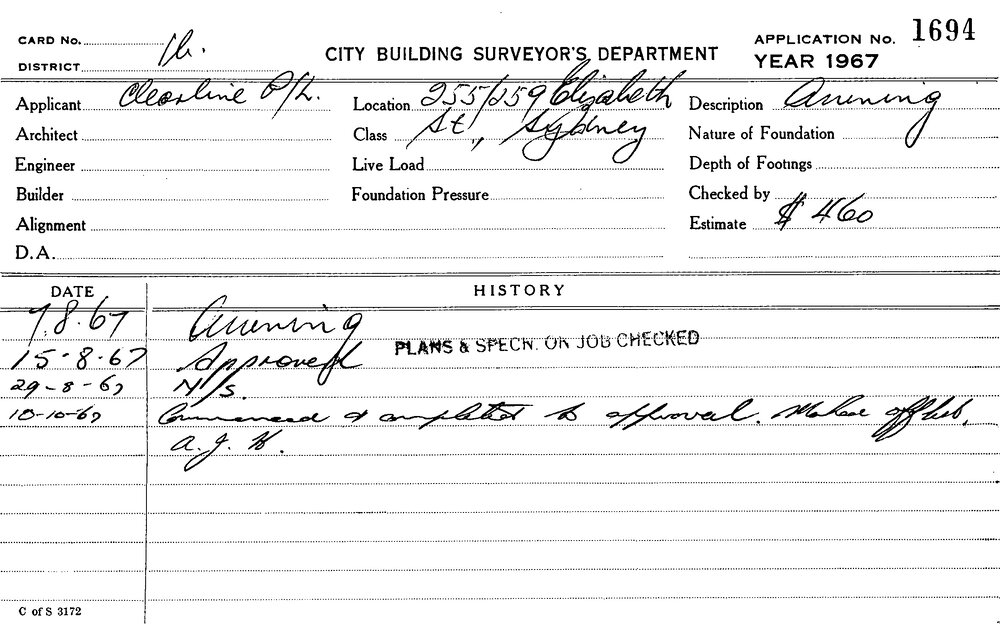 CARD No. 1b. CITY BUILDING SURVEYOR'S DEPARTMENT APPLICATION No. 1694
DISTRICT YEAR 1967
Applicant Clearline P/L. Location 255/259 Elizabeth Description Awning
Architect Class St., Sydney Nature of Foundation
Engineer Live Load Depth of Footings
Builder Foundation Pressure Checked by
Alignment Estimate $ 460
D.A.
DATE HISTORY
7.8.67 Awning
15-8-67 Approved PLANS & SPECN. ON JOB CHECKED
29-8-67 N/s.
10-10-67 Commenced & completed to approval. off list.
A.J.H.
C of S 3172